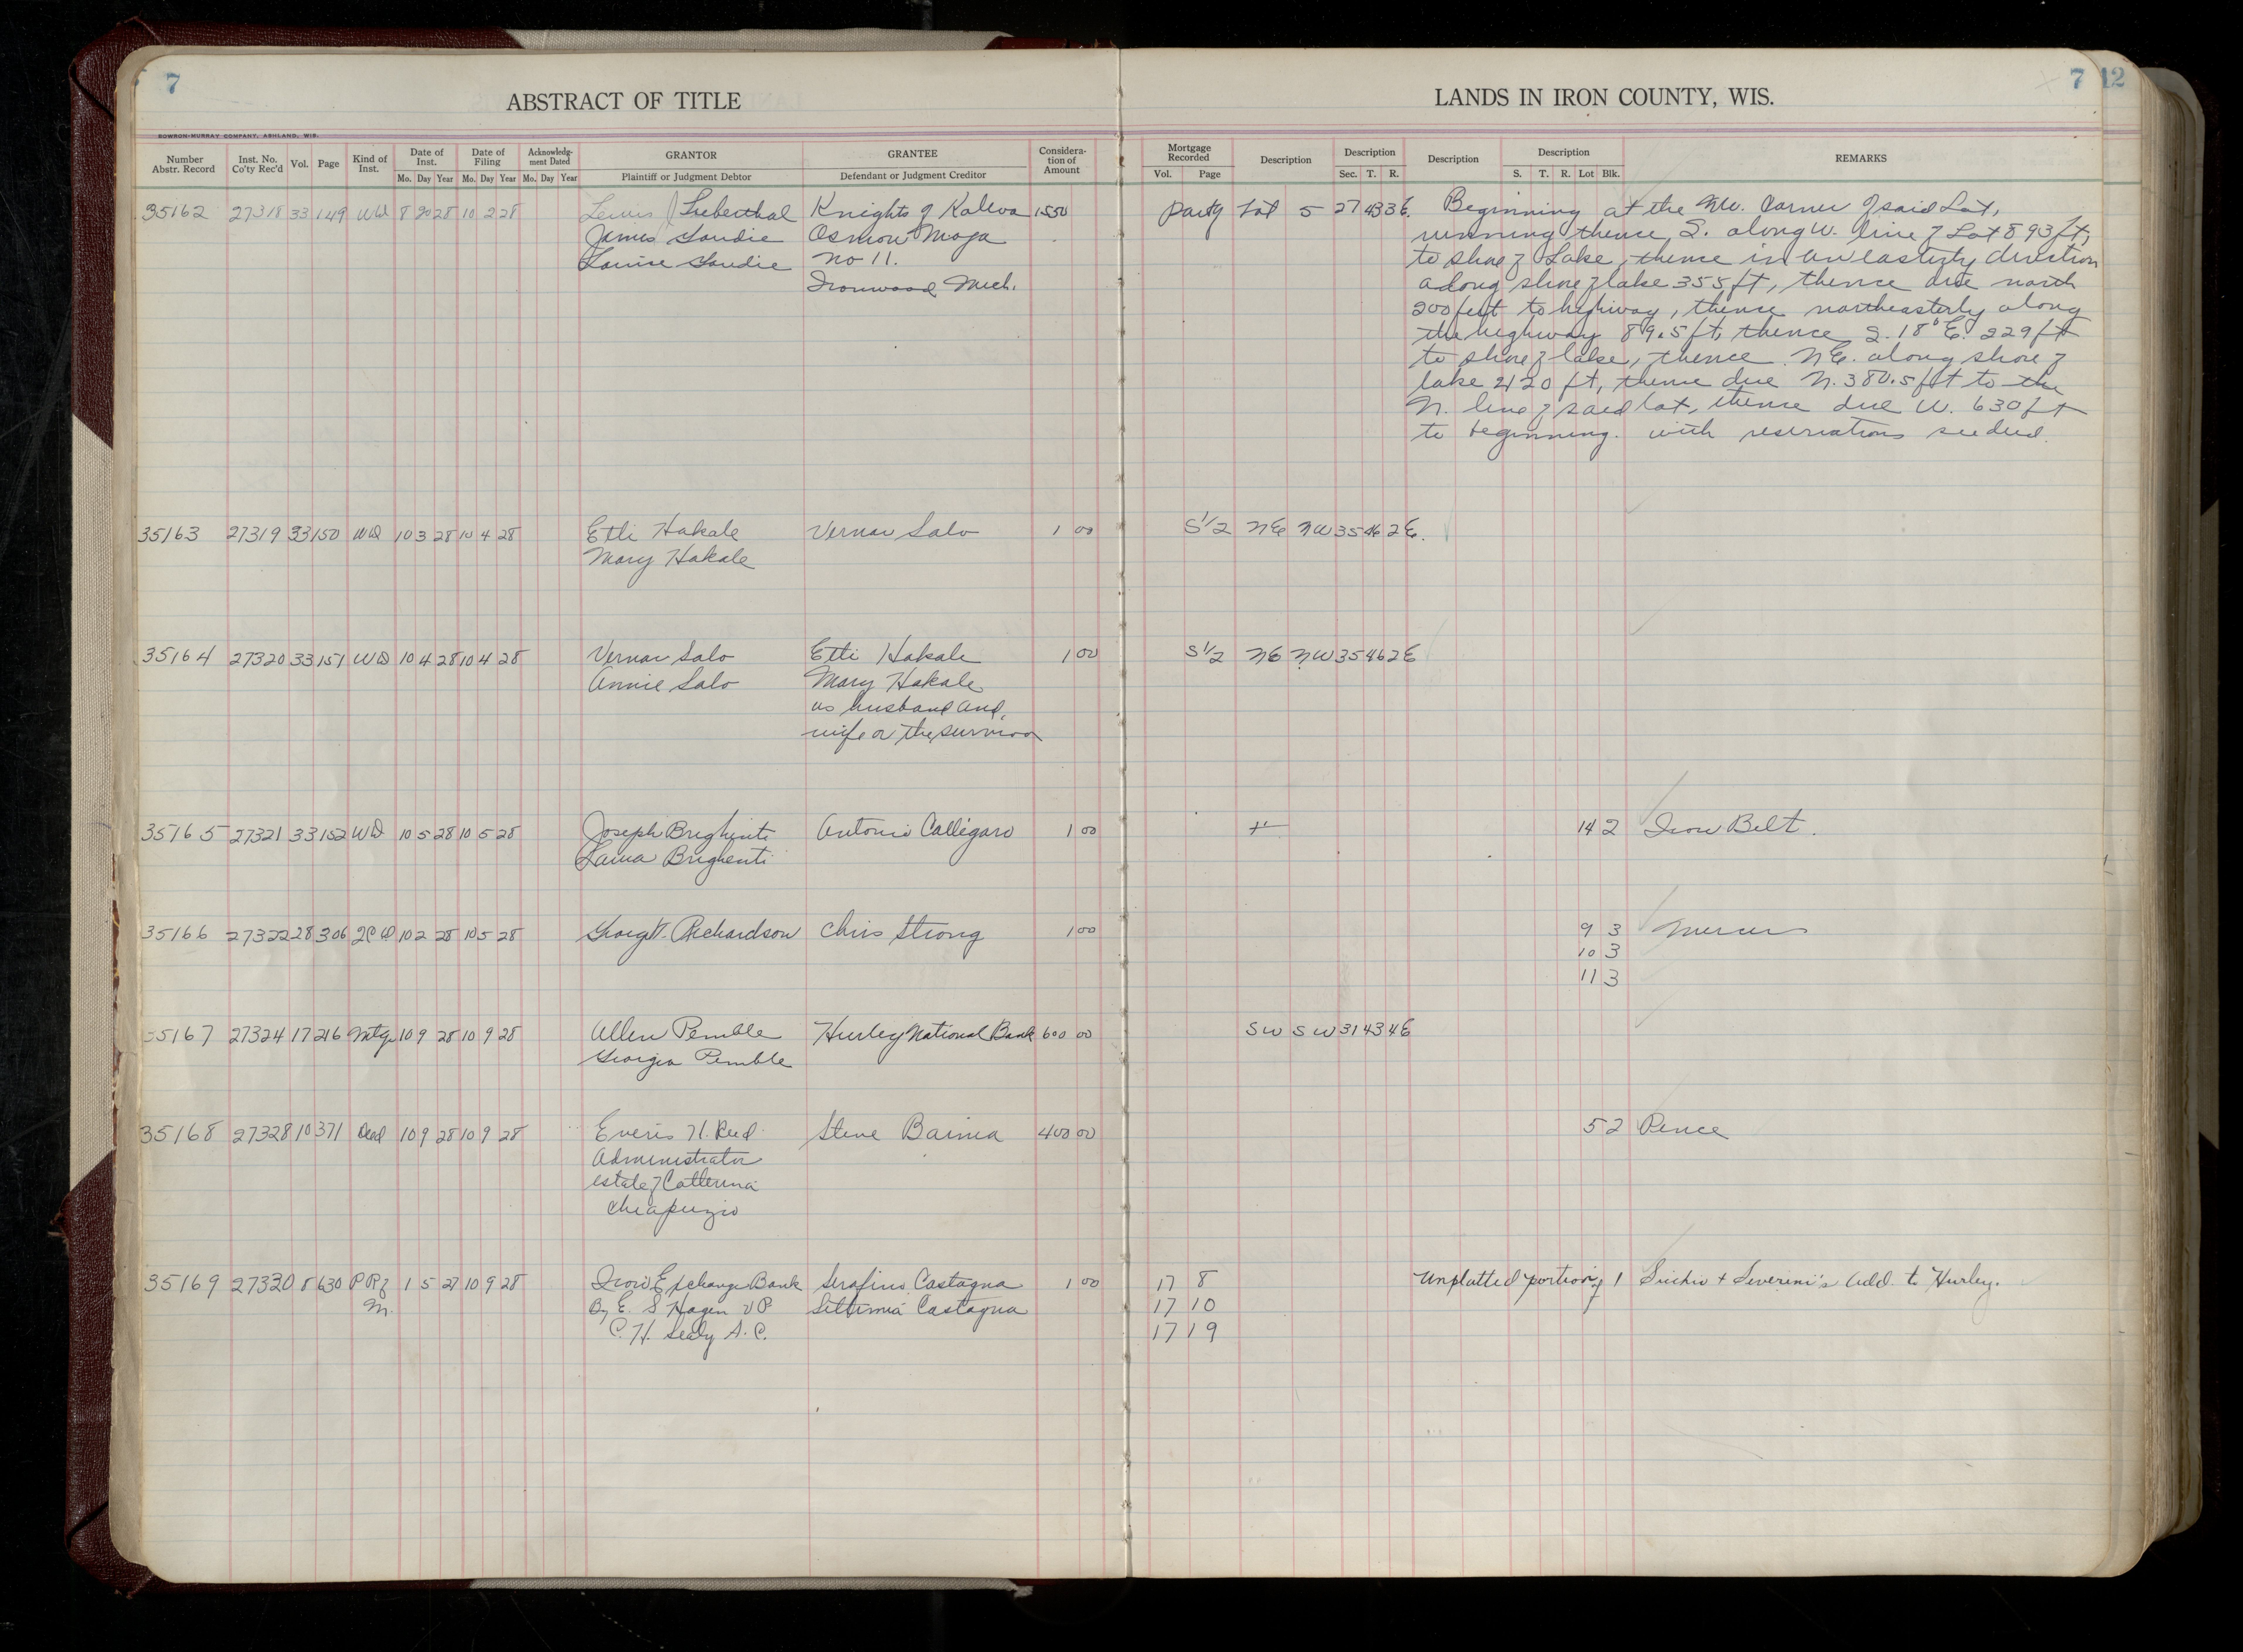 7
ABSTRACT OF TITLE
LANDS IN IRON COUNTY, WIS.
7 12
BOWRON-MURRAY COMPANY, ASHLAND, WIS.
Number Abstr. Record Inst. No. Co'ty Rec'd Vol. Page Kind of Inst. Date of Inst. Date of Filing Acknowledg-ment Dated GRANTOR GRANTEE Considera-tion of Amount Mortgage Recorded Description Description Description Description REMARKS
Mo. Day Year Mo. Day Year Mo. Day Year Plaintiff or Judgment Debtor Defendant or Judgment Creditor Vol. Page Sec. T. R. S. T. R. Lot Blk.
35162 27318 33 149 WD 8 20 28 10 2 28 Lewis Lieberthal Knights of Kaleva 1550 Part of Lot 5 27 43 3E. Beginning at the NW. Corner of said Lot,
James Goudie Osmon Maja running thence S. along W. line of Lot 893 ft,
Louise Goudie No 11. to shore of Lake, thence in an easterly direction
Ironwood Mich. along shore of lake 355 ft, thence due north
200 feet to highway, thence northeasterly along
the highway 89.5 ft, thence S. 18° E. 229 ft
to shore of lake, thence N.E. along shore of
lake 2120 ft, thence due N. 380.5 ft to the
N. line of said lot, thence due W. 630 ft
to beginning. with reservations see deed.
35163 27319 33 150 WD 10 3 28 10 4 28 Etli Hakale Vernar Salo 1 00 S 1/2 NE NW 35 46 2E.
Mary Hakale
35164 27320 33 151 WD 10 4 28 10 4 28 Vernar Salo Etli Hakale 1 00 S 1/2 NE NW 35 46 2E
Annie Salo Mary Hakale
as husband and,
wife or the survivor
35165 27321 33 152 WD 10 5 28 10 5 28 Joseph Brighenti Antonio Calligaro 1 00 14 2 Iron Belt.
Brighenti
35166 27322 28 306 QCD 10 2 28 10 5 28 Richardson Chris Strong 1 00 9 3 Mercer
10 3
11 3
35167 27324 17 216 Mtg 10 9 28 10 9 28 Allen Pemble Hurley National Bank 600 00 SW SW 31 43 4E
Georgia Pemble
35168 27328 10 371 Deed 10 9 28 10 9 28 Everis H. Reed Steve Bainia 400 00 5 2 Pence
Administrator
estate of Catterina
Chiapuzio
35169 27330 8 630 P R of 1 5 27 10 9 28 Iron Exchange Bank Serafino Castagna 1 00 17 8 Unplatted portion of 1 + Severini's Add. to Hurley.
M. By E. S Hagen V P. Castagna 17 10
C. H. Sealy A. C. 17 19